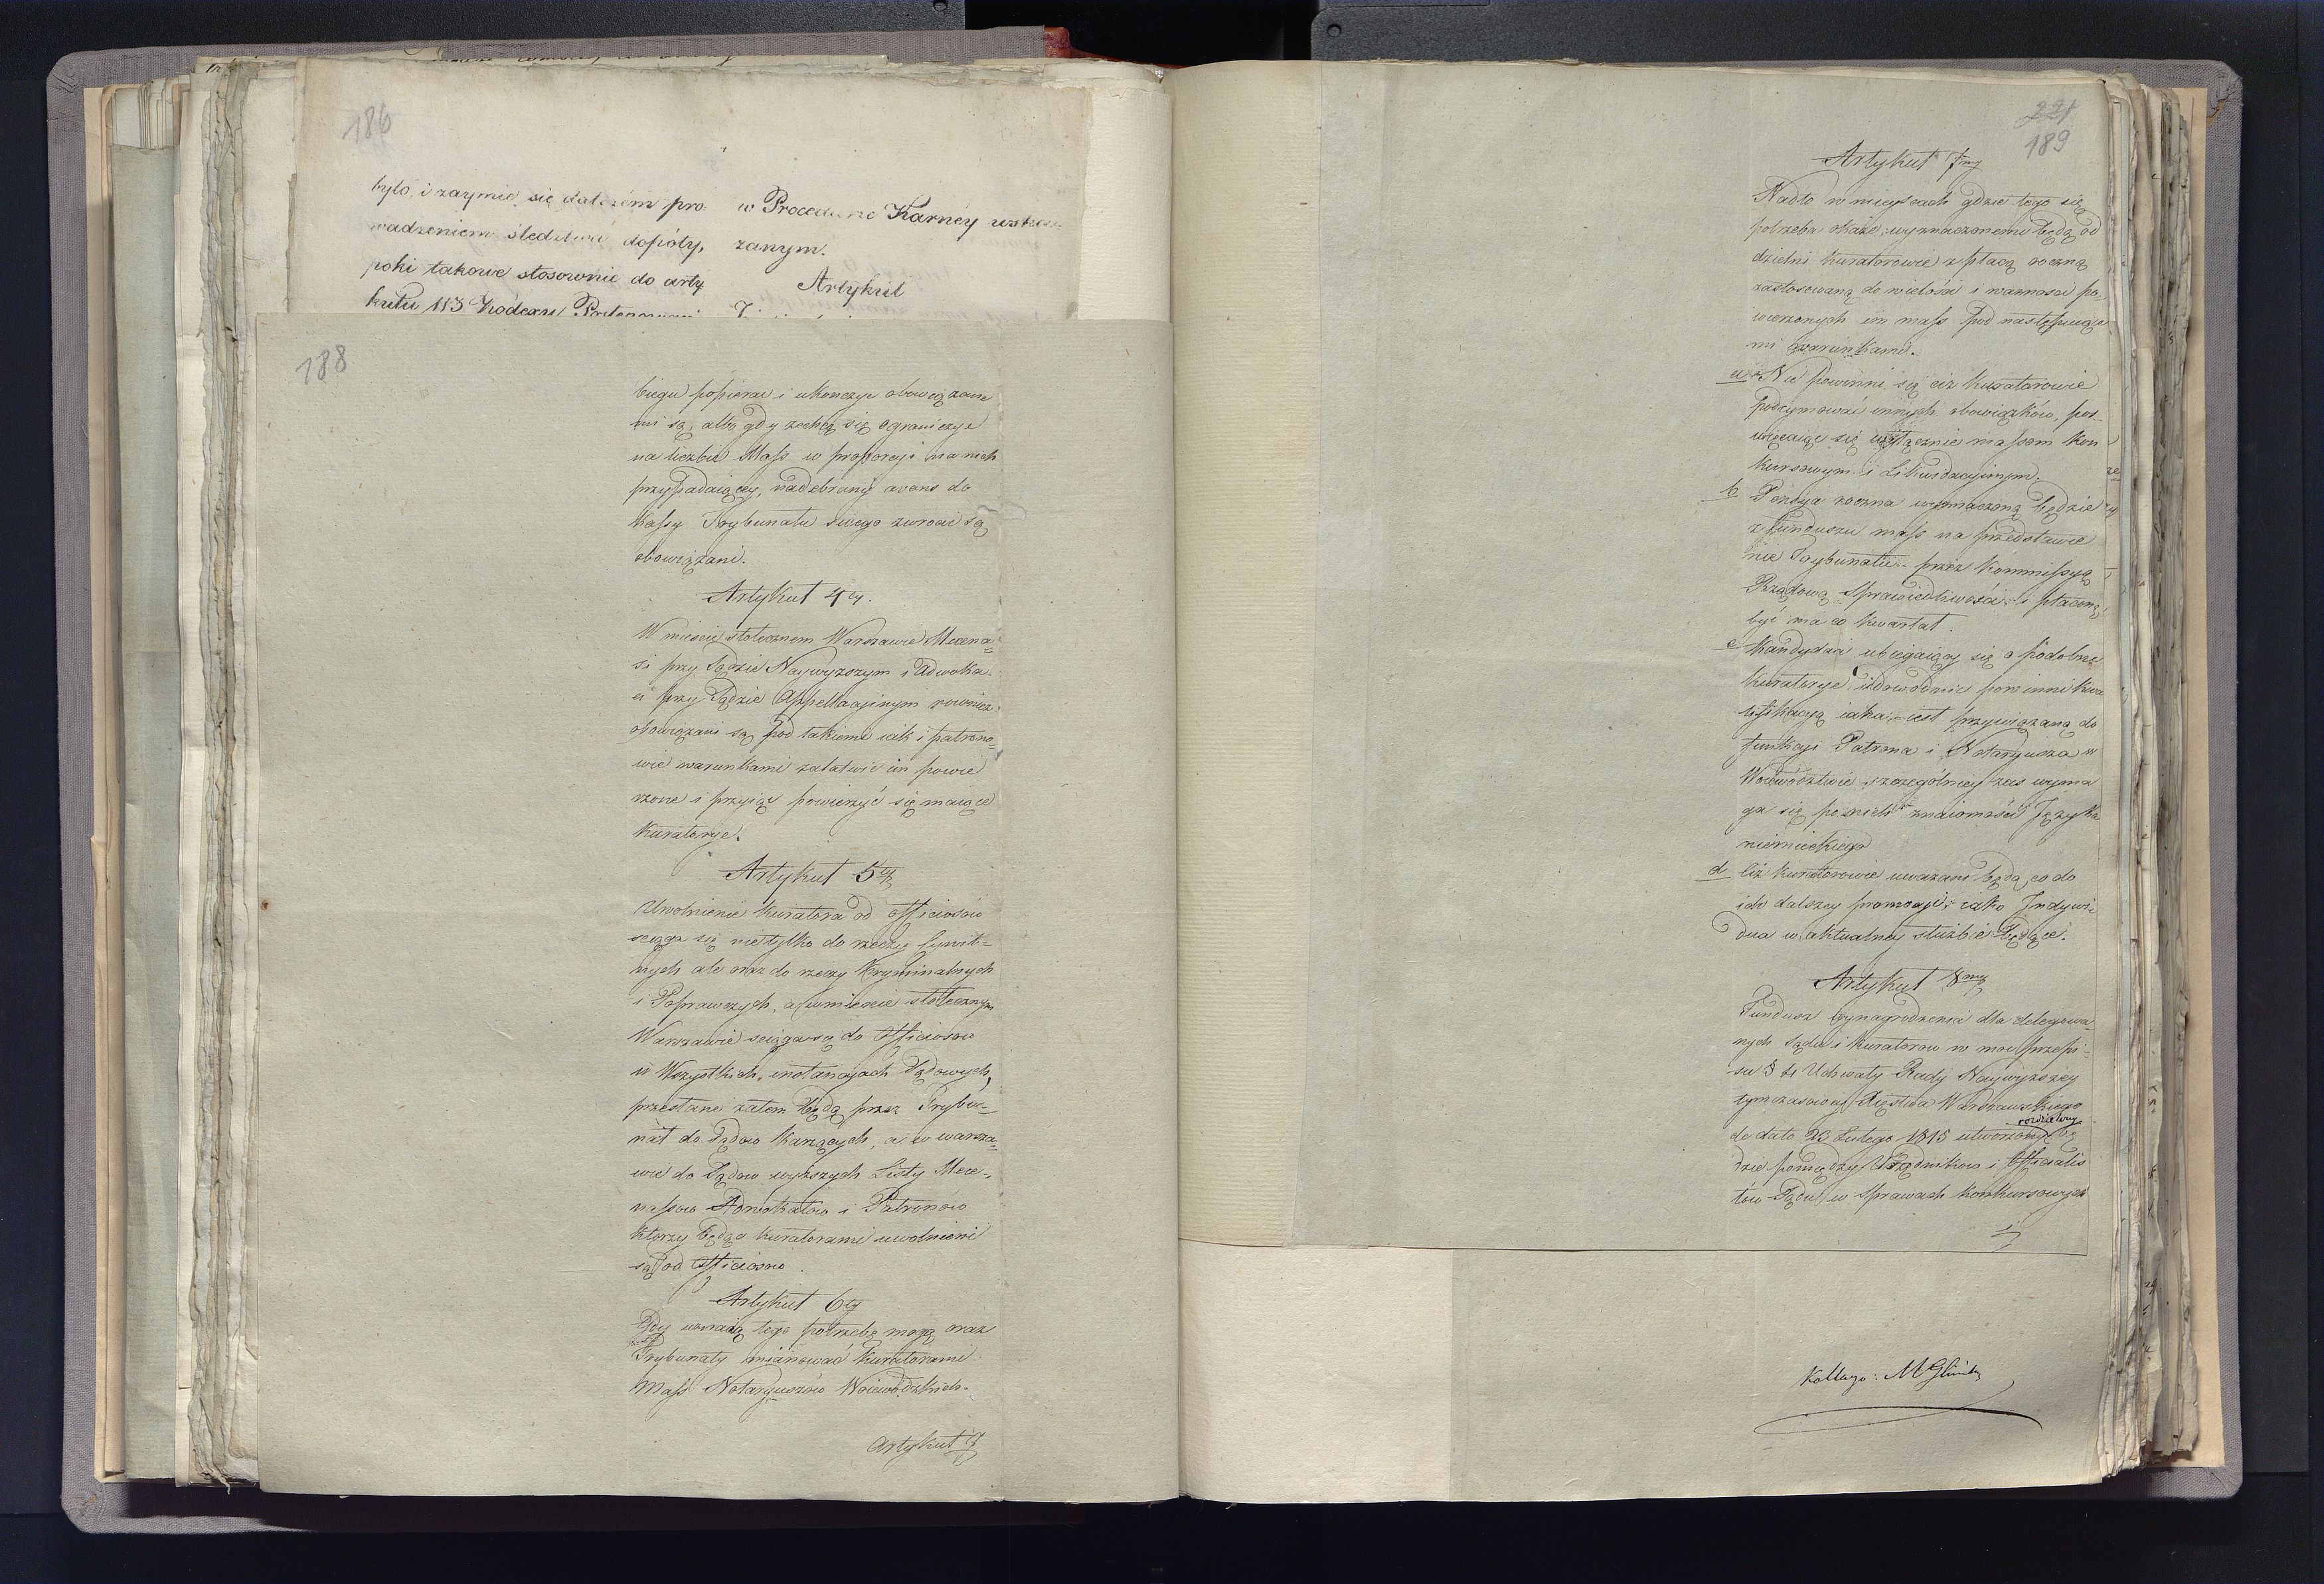 186
było, i zaymie się dalszém pro
wadzeniem śledztwa dopóty,
poki takowe stosownie do arty
kułu 113 Kodexu
w Procedurze Karnéy wska
zanym.
Artykuł
188
biegu popierać i ukończyć obowiązane
mi są, albo gdy zechcą się ograniczyć
na liczbie Mass w proporcyi na nich
przypadaiącey, nadebrany avans do
Kassy Trybunału swego zwrocić są
obowiązani.
Artykuł 4ty.
W mieście stołecznem Warszawie Mecena=
si przy Sądzie Naywyższym i Adwoka=
ci przy Sądzie Appellacyinym rownież
obowiązani są pod takiemi iak i patrono=
wie warunkami załatwić im powie
rzone i przyiąć powierzyć się maiące
Kuratorye.
Artykuł 5ty
Uwolnienie Kuratora od officiosow
sciąga się nie tylko do rzeczy Cywil=
nych ale oraz do rzeczy Kryminalnych
i Poprawczych, a w mieście stołecznym
Warszawie sciąga się do officiosow
w Wszystkich instancyach Sądowych,
przesłane zatem będą przez Trybu=
nał do Sądow Karzących, a w Warsza=
wie do Sądow wyższych Listy Mece=
nassow Adwokatow i Patronow
ktorzy będąc Kuratorami uwolnieni
są od officiosow.
Artykuł 6ty
Gdy uznaią tego potrzebę mogą oraz
Trybunały mianować Kuratorami
Mass Notaryuszów Woiewodzkich.
Artykuł 7
221
189
Artykuł 7my
Nadto w mieyscach gdzie tego się
potrzeba okaże, wyznaczonemi będą od
dzielni Kuratorowie z płacą roczną
zastosowaną do wielości i ważności po=
wierzonych im mass pod następuiące
mi warunkami.
a Nie powinni się ciż Kuratorowie
podeymować innych obowiązków, poś=
więcaiąc się wyłącznie massom kon
kursowym i Likwidacyinym.
b Pensya roczna wyznaczoną będzie
z funduszu mass na przedstawie
nie Trybunału przez Kommissyą
Rządową Sprawiedliwości i płaconą
być ma co kwartał.
c Kandydaci ubiegaiący się o podobne
Kuratorye udowodnić powinni kwa
lifikacyą iaka iest przywiązaną do
funkcyi Patrona i Notaryusza w
Woiewództwie szczególniey zaś wyma
ga się po nich znaiomość Języka
niemieckiego
d Ciż Kuratorowie uważani będą co do
ich dalszey promocyi iako Indywi
dua w aktualney służbie będące.
Artykuł 8my
Fundusz wynagrodzenia dla delegowa=
nych Sądu i Kuratorow w moc przepi=
su § Uchwały Rady Naywyższey
tymczasowey Xięstwa Warszawskiego
de dato 23 Lutego 1815 utworzony bę
rozdzielony
dzie pomiędzy Urzędników i Officialis
tów Sądu w Sprawach Konkursowych
i
Kollazo: